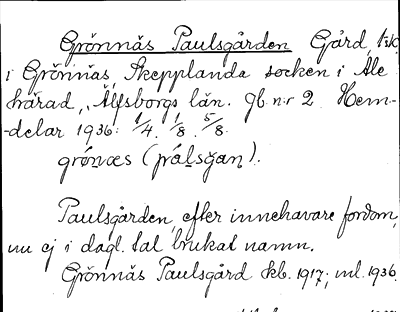 Grönnäs Paulsgården Gård, 1sk
i Grönnäs, Skepplanda socken i Ale
härad, Älfsborgs län. Jb. nr 2. Hem-
-delar 1936: 1/4. 1/8. 5/8.
grónæs (
Paulsgården, efter innehavare fordom,
nu ej i dagl. tal brukat namn.
Grönnäs Paulsgård kb. 1917; ml. 1936.